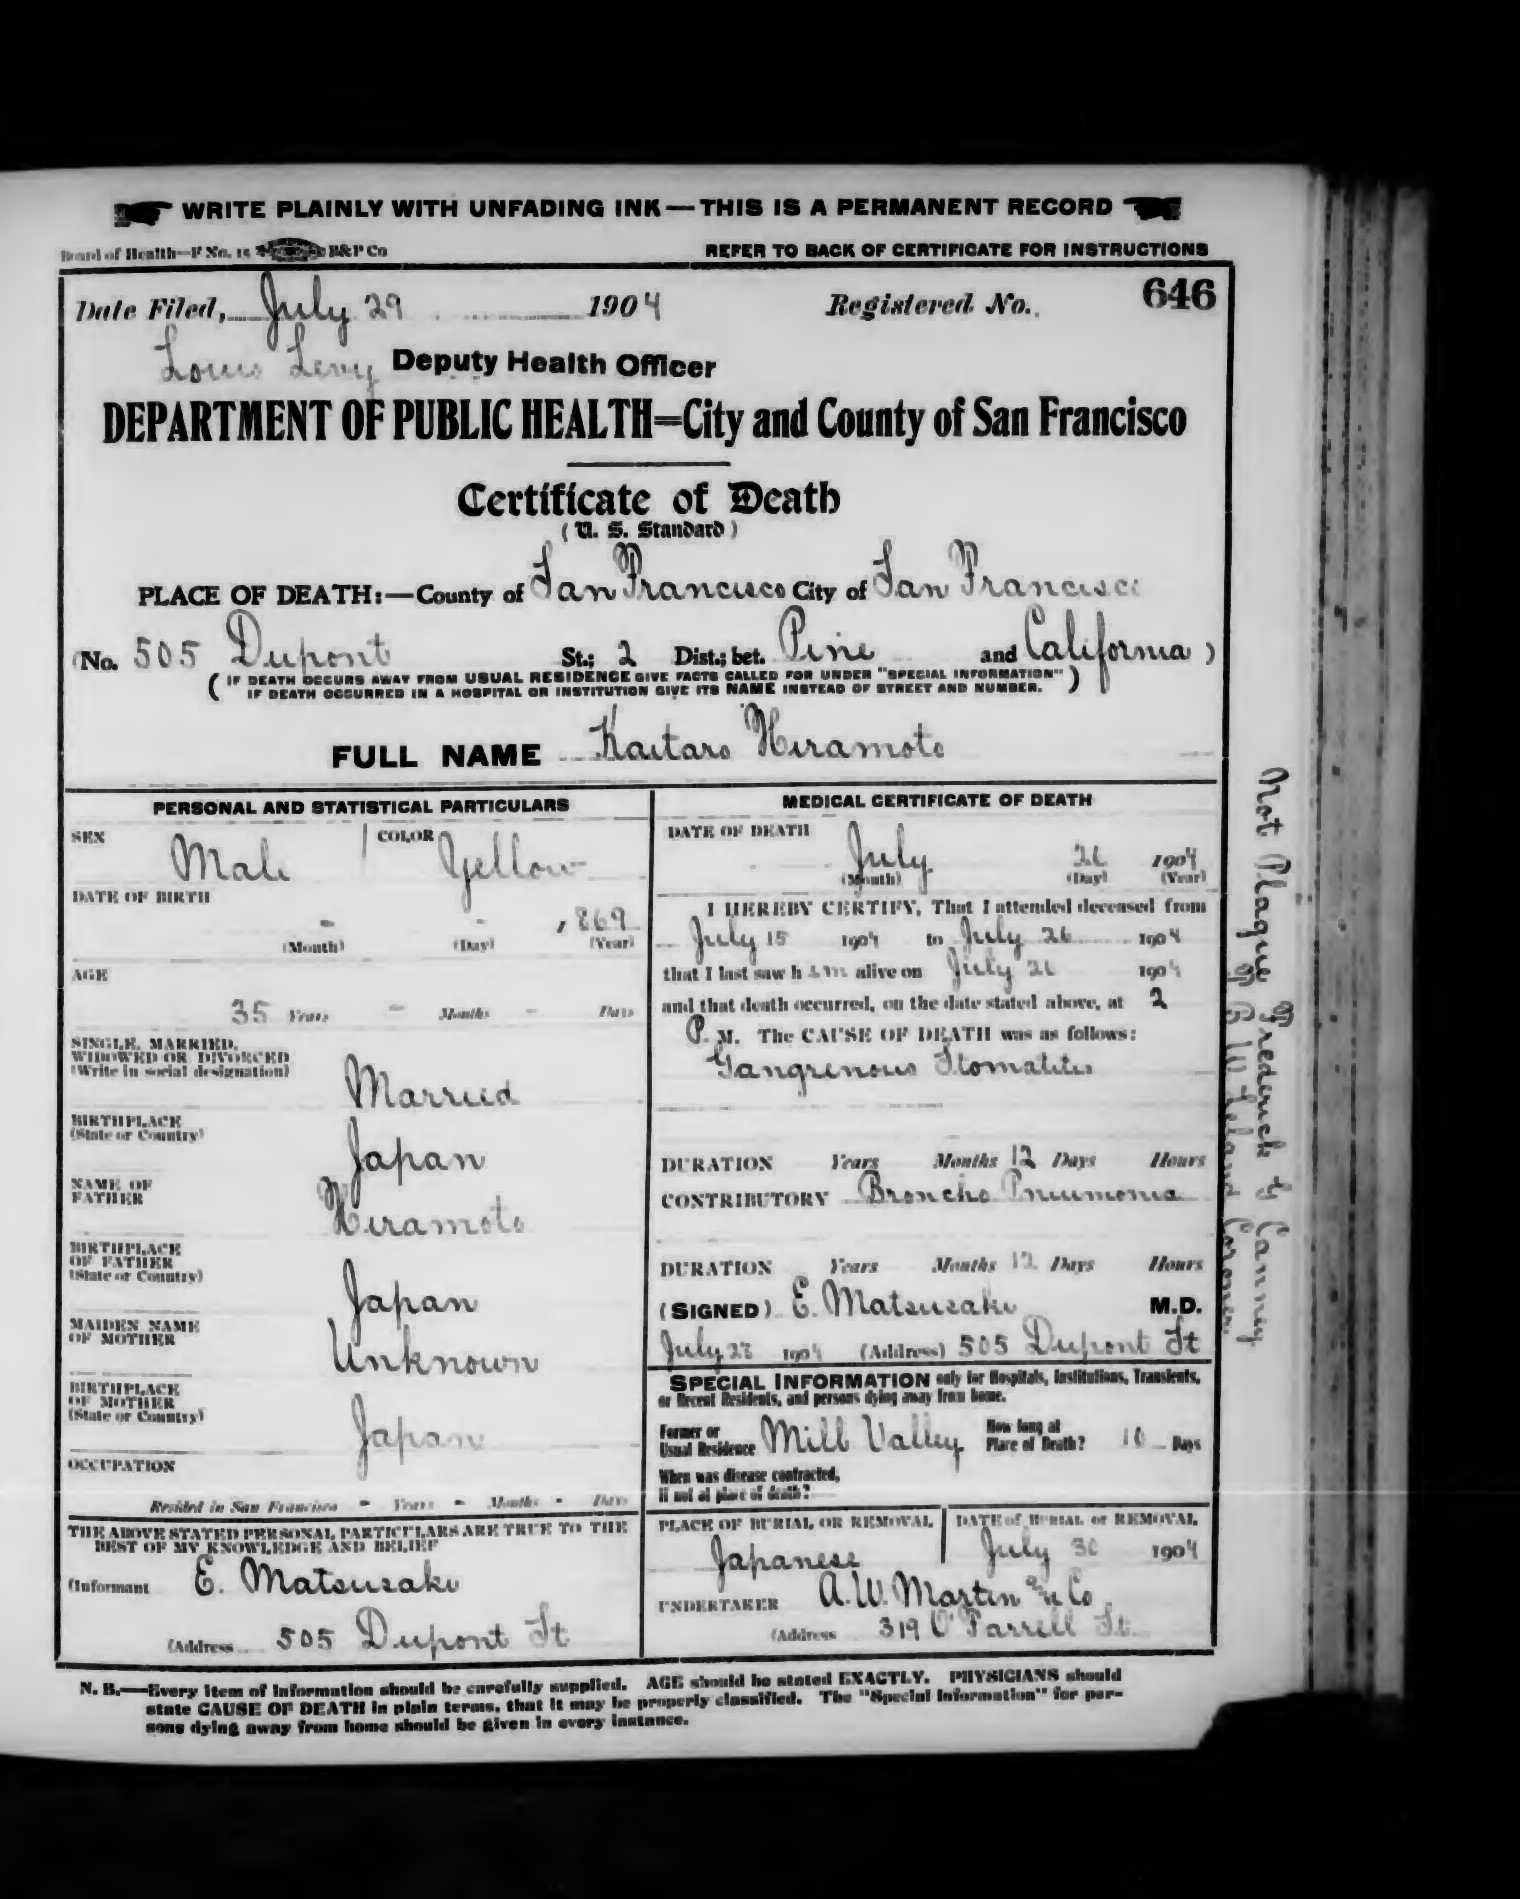 WRITE PLAINLY WITH UNFADING INK—THIS IS A PERMANENT RECORD
Board of Health—F No. 15 B&P Co REFER TO BACK OF CERTIFICATE FOR INSTRUCTIONS
Date Filed, July 29 1904 Registered No. 646
Louis Levy Deputy Health Officer
DEPARTMENT OF PUBLIC HEALTH=City and County of San Francisco
Certificate of Death
(U. S. Standard)
PLACE OF DEATH:—County of San Francisco City of San Francisco
(No. 505 Dupont St.; 2 Dist.; bet. Pine and California)
(IF DEATH OCCURS AWAY FROM USUAL RESIDENCE GIVE FACTS CALLED FOR UNDER "SPECIAL INFORMATION"
IF DEATH OCCURRED IN A HOSPITAL OR INSTITUTION GIVE ITS NAME INSTEAD OF STREET AND NUMBER.)
FULL NAME Kaitaro Hiramoto
PERSONAL AND STATISTICAL PARTICULARS
SEX Male COLOR Yellow
DATE OF BIRTH
- - 1869
(Month) (Day) (Year)
AGE
35 Years - Months - Days
SINGLE, MARRIED,
WIDOWED OR DIVORCED
(Write in social designation)
Married
BIRTHPLACE
(State or Country)
Japan
NAME OF
FATHER
Hiramoto
BIRTHPLACE
OF FATHER
(State or Country)
Japan
MAIDEN NAME
OF MOTHER
Unknown
BIRTHPLACE
OF MOTHER
(State or Country)
Japan
OCCUPATION
Resided in San Francisco - Years - Months - Days
THE ABOVE STATED PERSONAL PARTICULARS ARE TRUE TO THE
BEST OF MY KNOWLEDGE AND BELIEF
(Informant E. Matsusaki
(Address 505 Dupont St
MEDICAL CERTIFICATE OF DEATH
DATE OF DEATH
July 26 1904
(Month) (Day) (Year)
I HEREBY CERTIFY, That I attended deceased from
July 15 1904 to July 26 1904
that I last saw him alive on July 26 1904
and that death occurred, on the date stated above, at 2
P. M. The CAUSE OF DEATH was as follows:
Gangrenous Stomatitis
DURATION Years Months 12 Days Hours
CONTRIBUTORY Broncho Pneumonia
DURATION Years Months 12 Days Hours
(SIGNED) E. Matsusaki M.D.
July 1904 (Address) 505 Dupont St
SPECIAL INFORMATION only for Hospitals, Institutions, Transients,
or Recent Residents, and persons dying away from home.
Former or
Usual Residence Mill Valley
How long at
Place of Death? 10 Days
When was disease contracted,
if not at place of death?
PLACE OF BURIAL OR REMOVAL
Japanese
DATE of BURIAL or REMOVAL
July 30 1904
UNDERTAKER A. W. Martin & Co
(Address 319 O'Farrell St.
N. B.—Every item of information should be carefully supplied. AGE should be stated EXACTLY. PHYSICIANS should
state CAUSE OF DEATH in plain terms, that it may be properly classified. The "Special Information" for per-
sons dying away from home should be given in every instance.
Not Plague Frederick G Canney
T B W Leland Coroner.